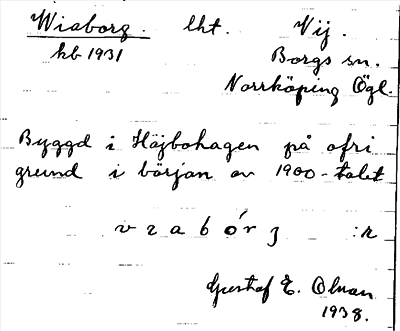 Wiaborg. lht. Vij.
kb 1931 Borgs sn.
Norrköping Ögl.
Byggd i Höjbohagen på ofri
grund i början av 1900-talet
:n
Gustaf E.
1938.